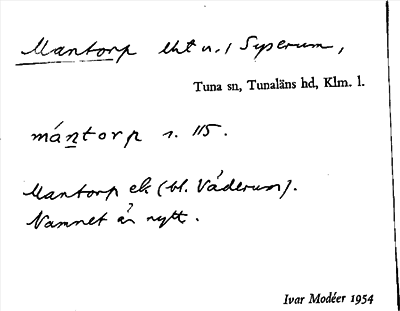 Mantorp lht u. / Syserum,
Tuna sn, Tunaläns hd, Klm. l.
mántorp s. 115.
Mantorp ek (bl. Väderum).
Namnet är nytt.
Ivar Modéer 1954